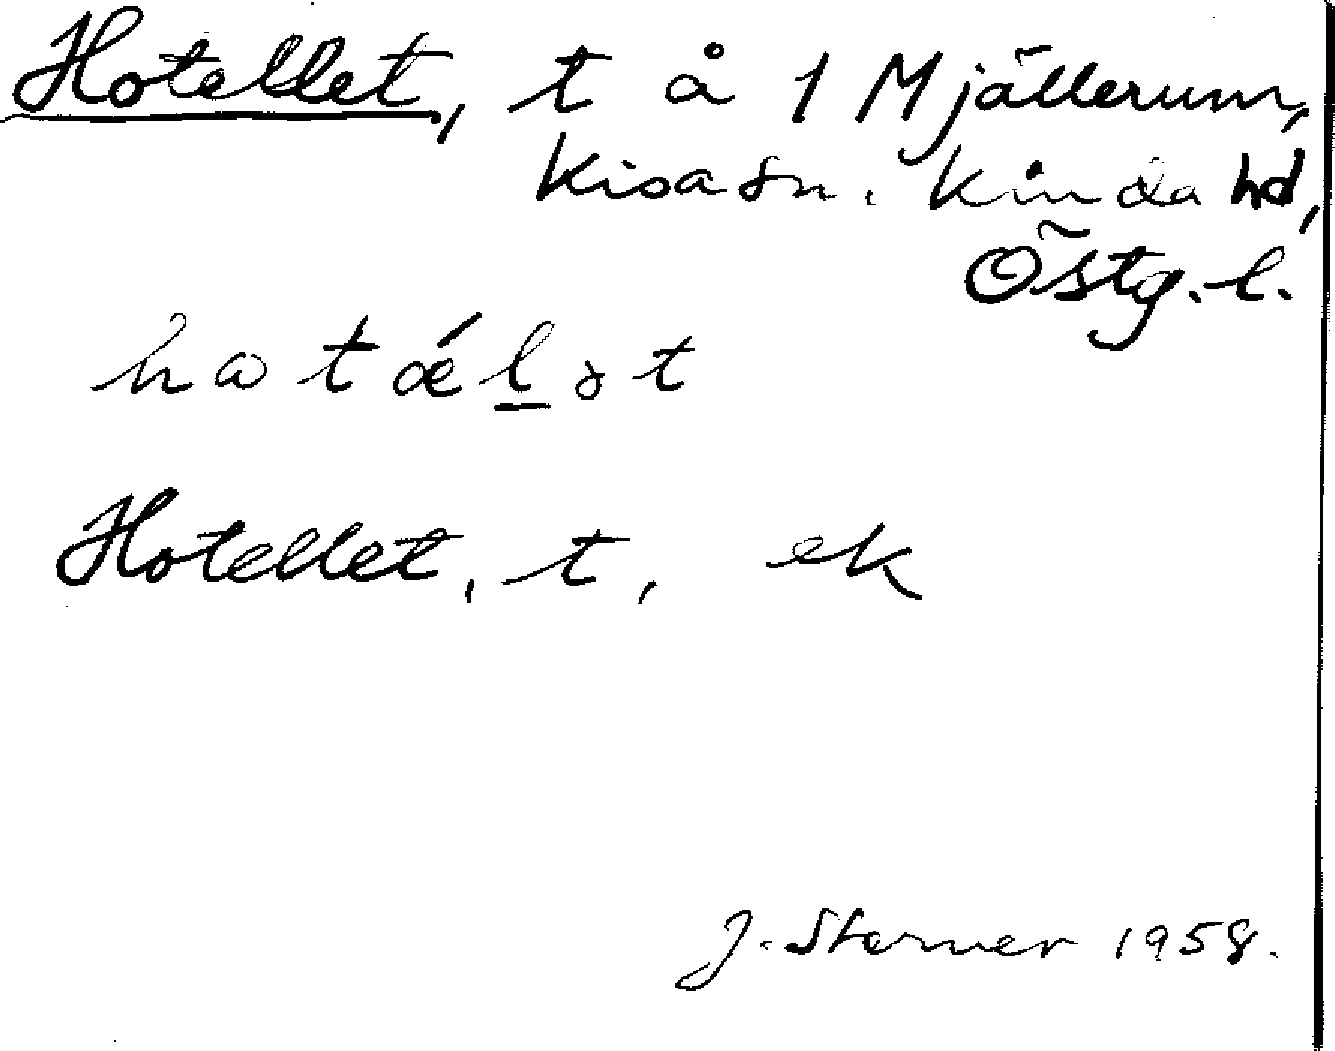 Hotellet, t å 1 Mjällerum,
Kisa sn. Kinda hd,
Östg.l.
hatǽlət
Hotellet, t, ek
J. Sterner 1958.